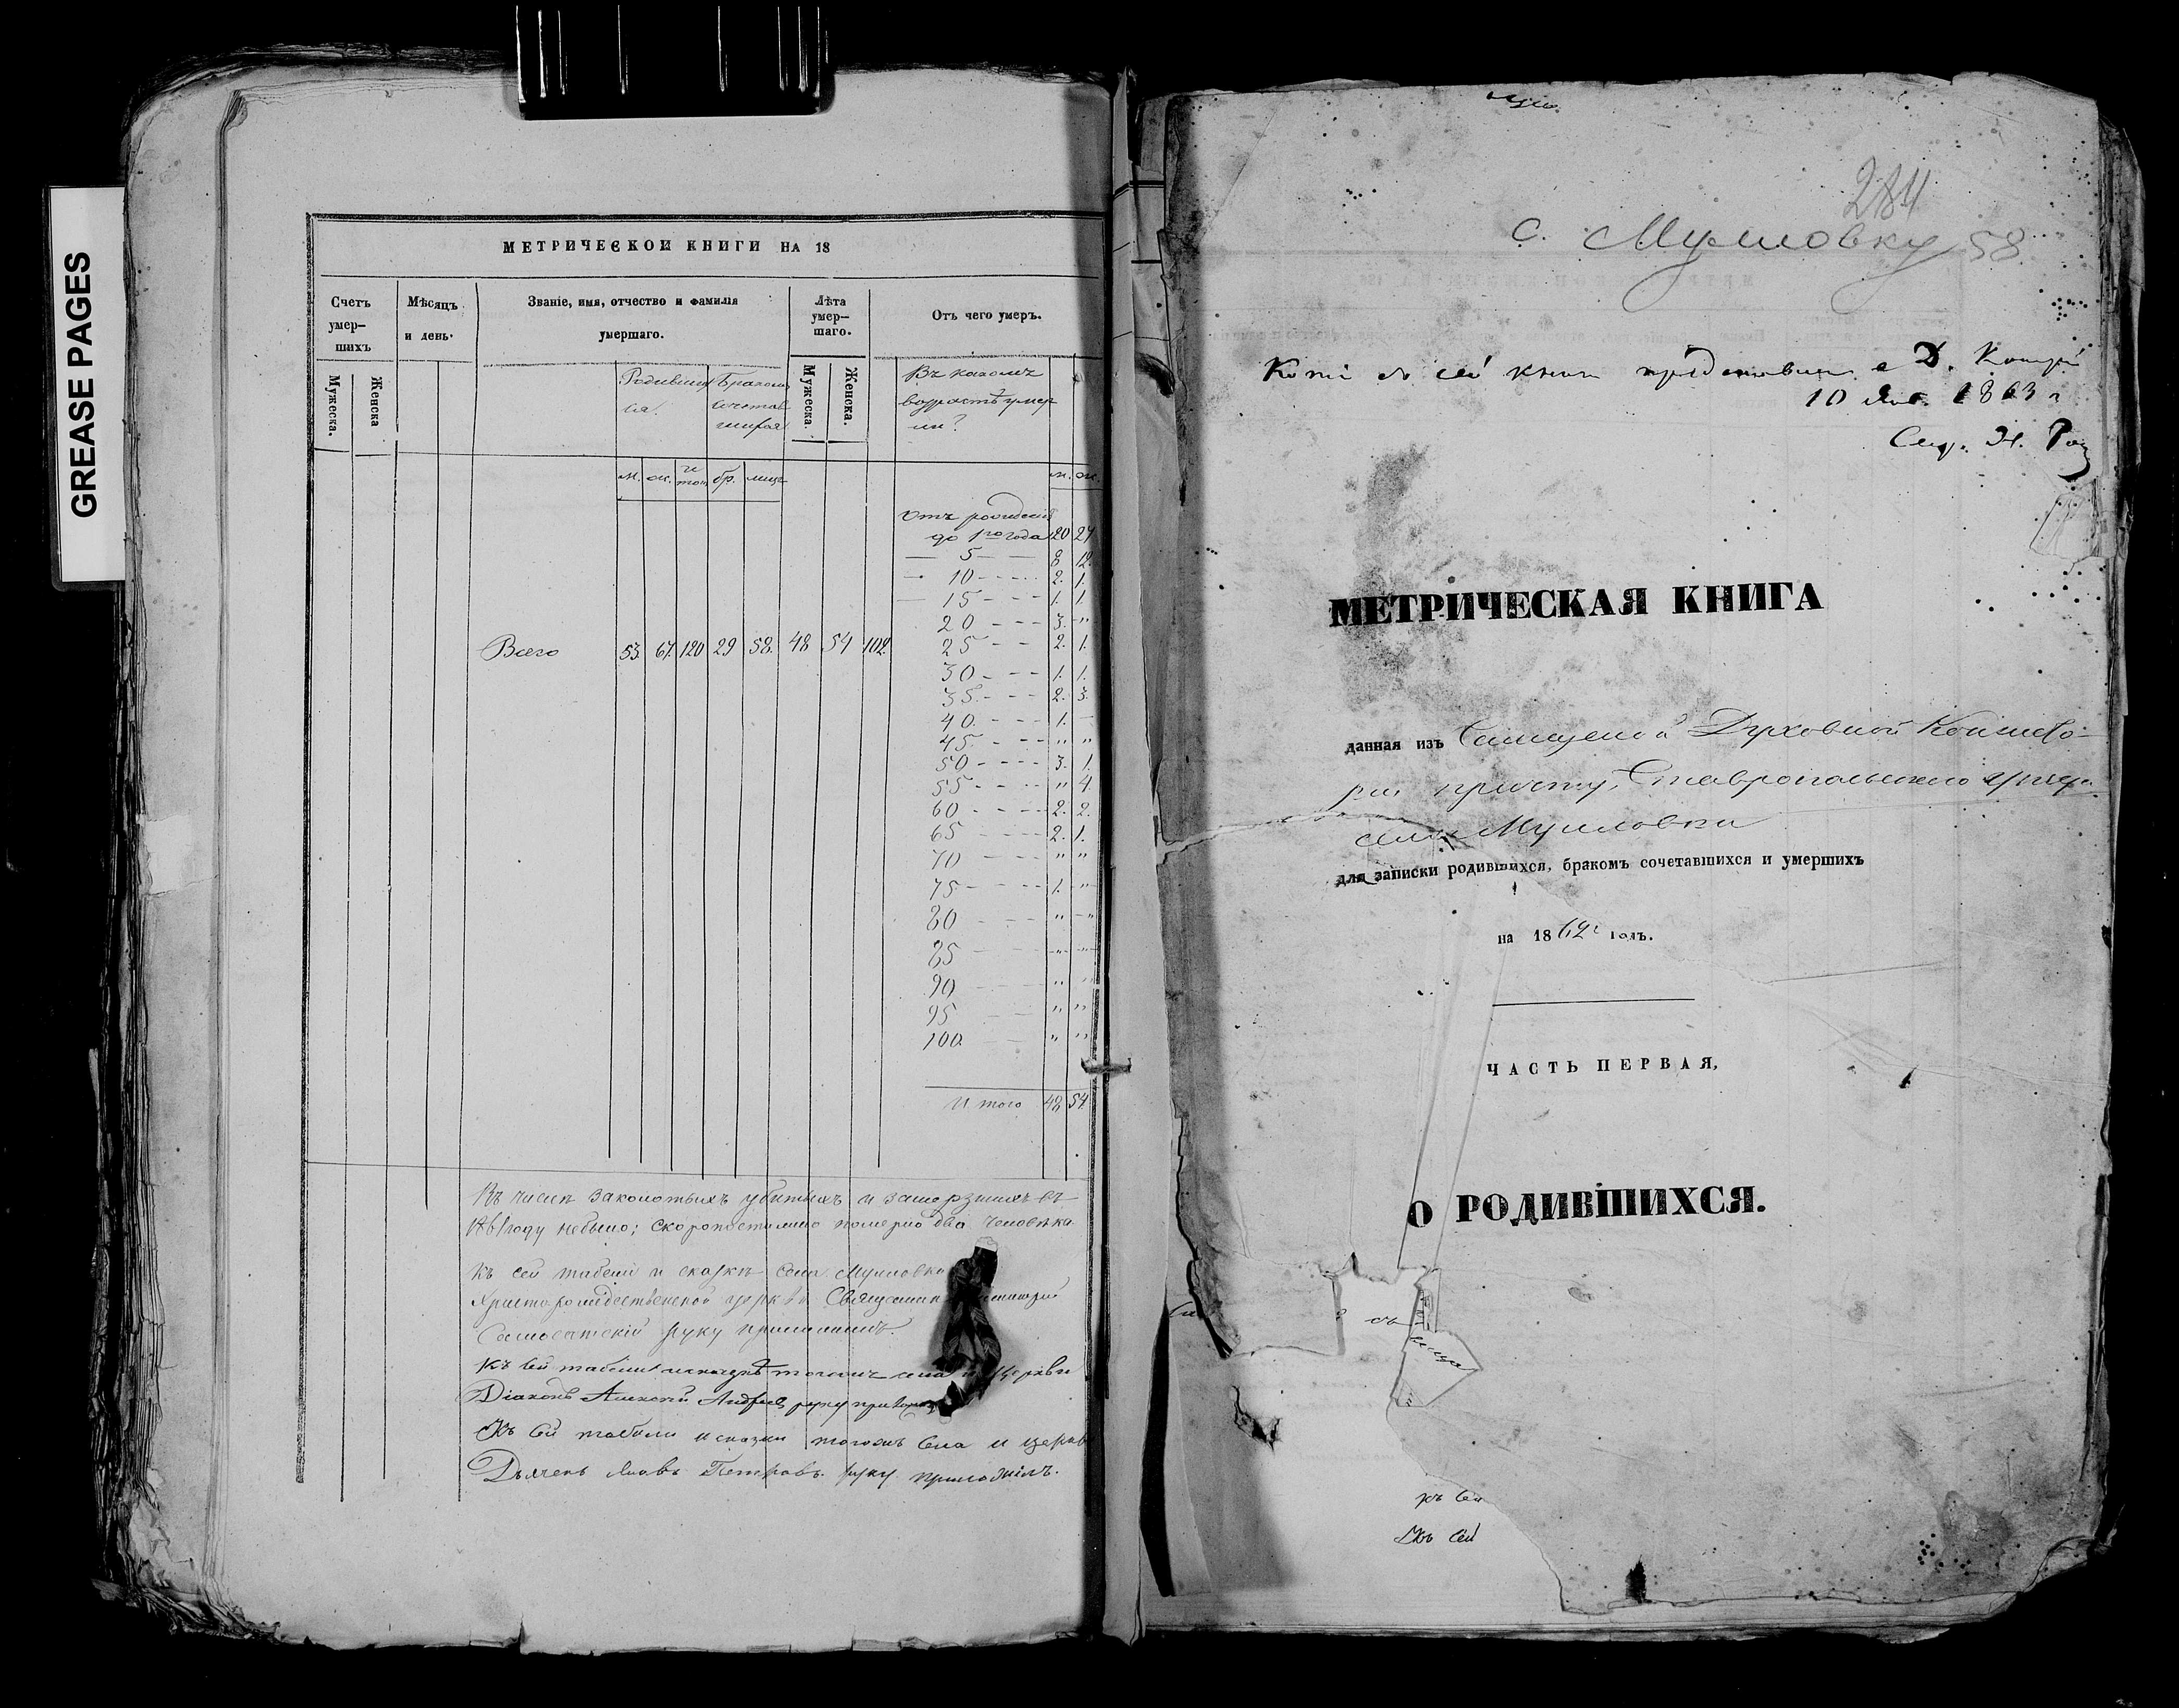 GREASE PAGES
МЕТРИЧЕСКОИ КНИГИ НА 18
Счетъ умер-шихъ
Мѣсяцъ и день.
Званіе, имя, отчество и фамилія умершаго.
Лѣта умер-шаго.
Отъ чего умеръ.
Мужеска.
Женска
Родивших ся.
Браком сочетав шихся
Мужеска.
Женска.
Въ какомъ возрастѣ умер ли?
м. ж. и то. бр. лицъ
м. ж.
Отъ рожденія
до 1го года 20 27
5 8. 12.
10 2. 1.
15 1. 1.
20 3. "
Всего 53. 67. 120 29 58. 48 54 102.
25 2. 1.
30 1. 1.
35 2. 3.
40 1. -
45 " "
50 3. 1.
55 " 4.
60 2. 2.
65 2. 1.
70 " "
75 1. "
80 " "
85 " "
90 " "
95 " "
100. " "
Итого 48 54
Въ числѣ заколотыхъ убитыхъ и замерзшихъ въ
году небыло; скоропостижно померло два человѣка.
Къ сей табели и сказкѣ села
Христорождественской церкви Священник
руку приложилъ.
Къ сей табели и сказкѣ тогожъ села и Церкви
Діаконъ Алексѣй Андреев руку приложи
Къ сей табели и сказки тогожъ села и церкв
Дьячекъ Яковъ Петровъ руку приложилъ.
284
с. 58
Копія съ сей книги представлена в Д. Конс
10 Янв. 1863 г
Свящ. Н.
МЕТРИЧЕСКАЯ КНИГА
данная изъ Самарской Духовной Консисто-
ріи причту, Ставропольскаго уѣзд.
села
для записки родившихся, бракомъ сочетавшихся и умершихъ
на 1862 годъ.
ЧАСТЬ ПЕРВАЯ,
О РОДИВШИХСЯ.
къ сей
Къ сей